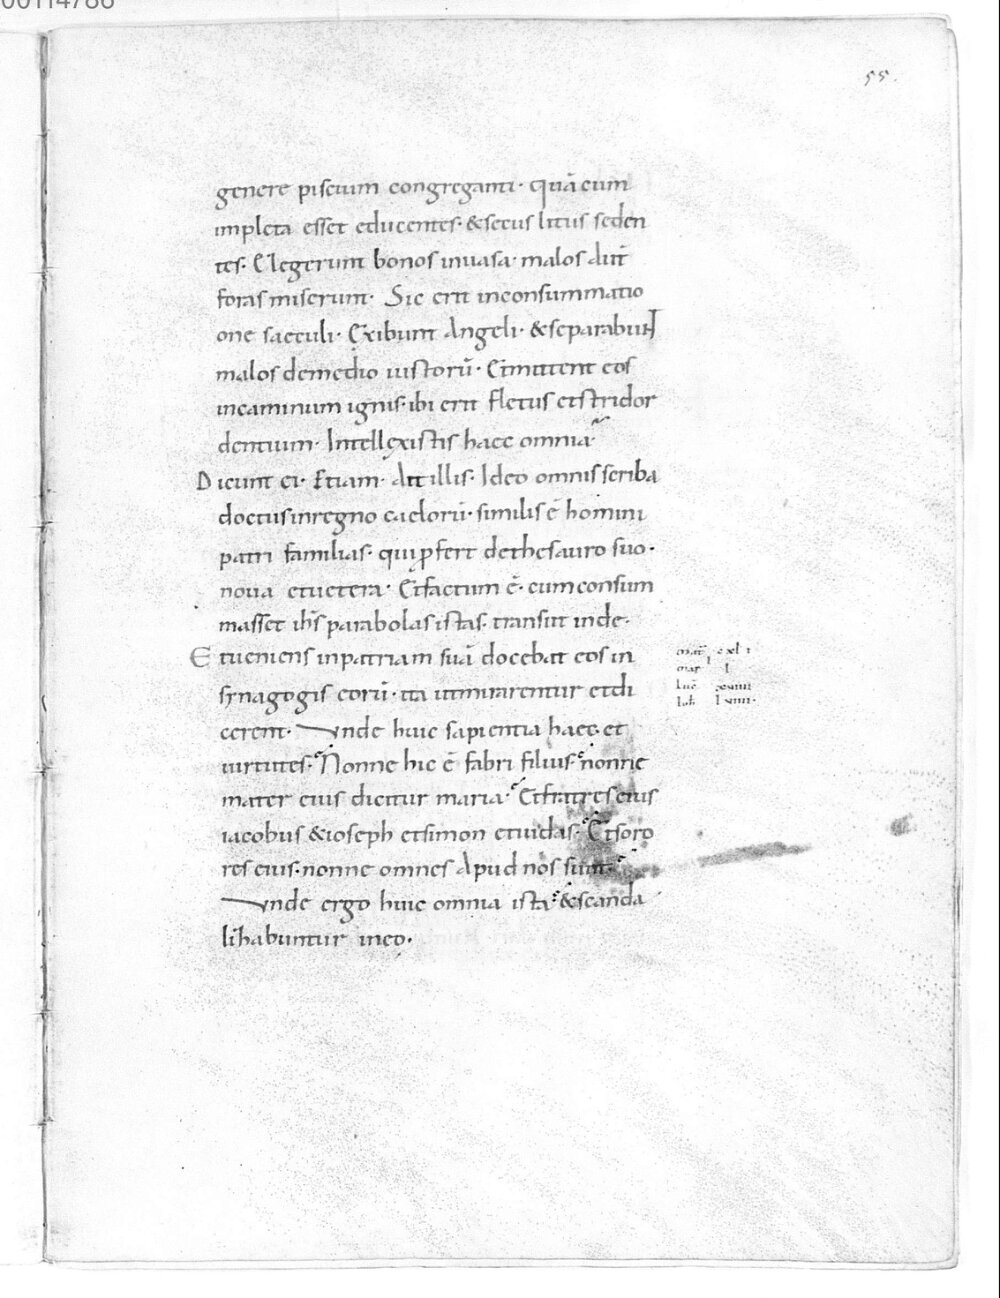 00114786
55.
genere piscium congreganti· quā cum
impleta esset educentes· &secus litus seden
tes· Elegerunt bonos inuasa· malos aūt
foras miserunt· Sic erit inconsummatio
one saeculi· Exibunt Angeli· &separabunt
malos demedio iustorū· Emittent eos
incaminum ignis· ibi erit fletus etstridor
dentium· Intellexistis haec omnia
Dicunt ei· Etiam· Ait illis· Ideo omnis scriba
doctus inregno caelorū· similis ē homini
patri familias· qui ꝓfert dethesauro suo·
noua etuetera· Etfactum ē· cum consum
masset ihs̄ parabolas istas· transiit inde·
Et ueniens inpatriam suā docebat eos in
synagogis eorū· ita utmirarentur etdi
cerent· Unde huic sapientia haec· et
uirtutes· Nonne hic ē fabri filius· nonne
mater eius dicitur maria· Etfratres eius
iacobus &ioseph etsimon etiudas· Etsoro
res eius· nonne omnes Apud nos sunt
Unde ergo huic omnia ista· &scanda
lihabuntur ineo·
mar l